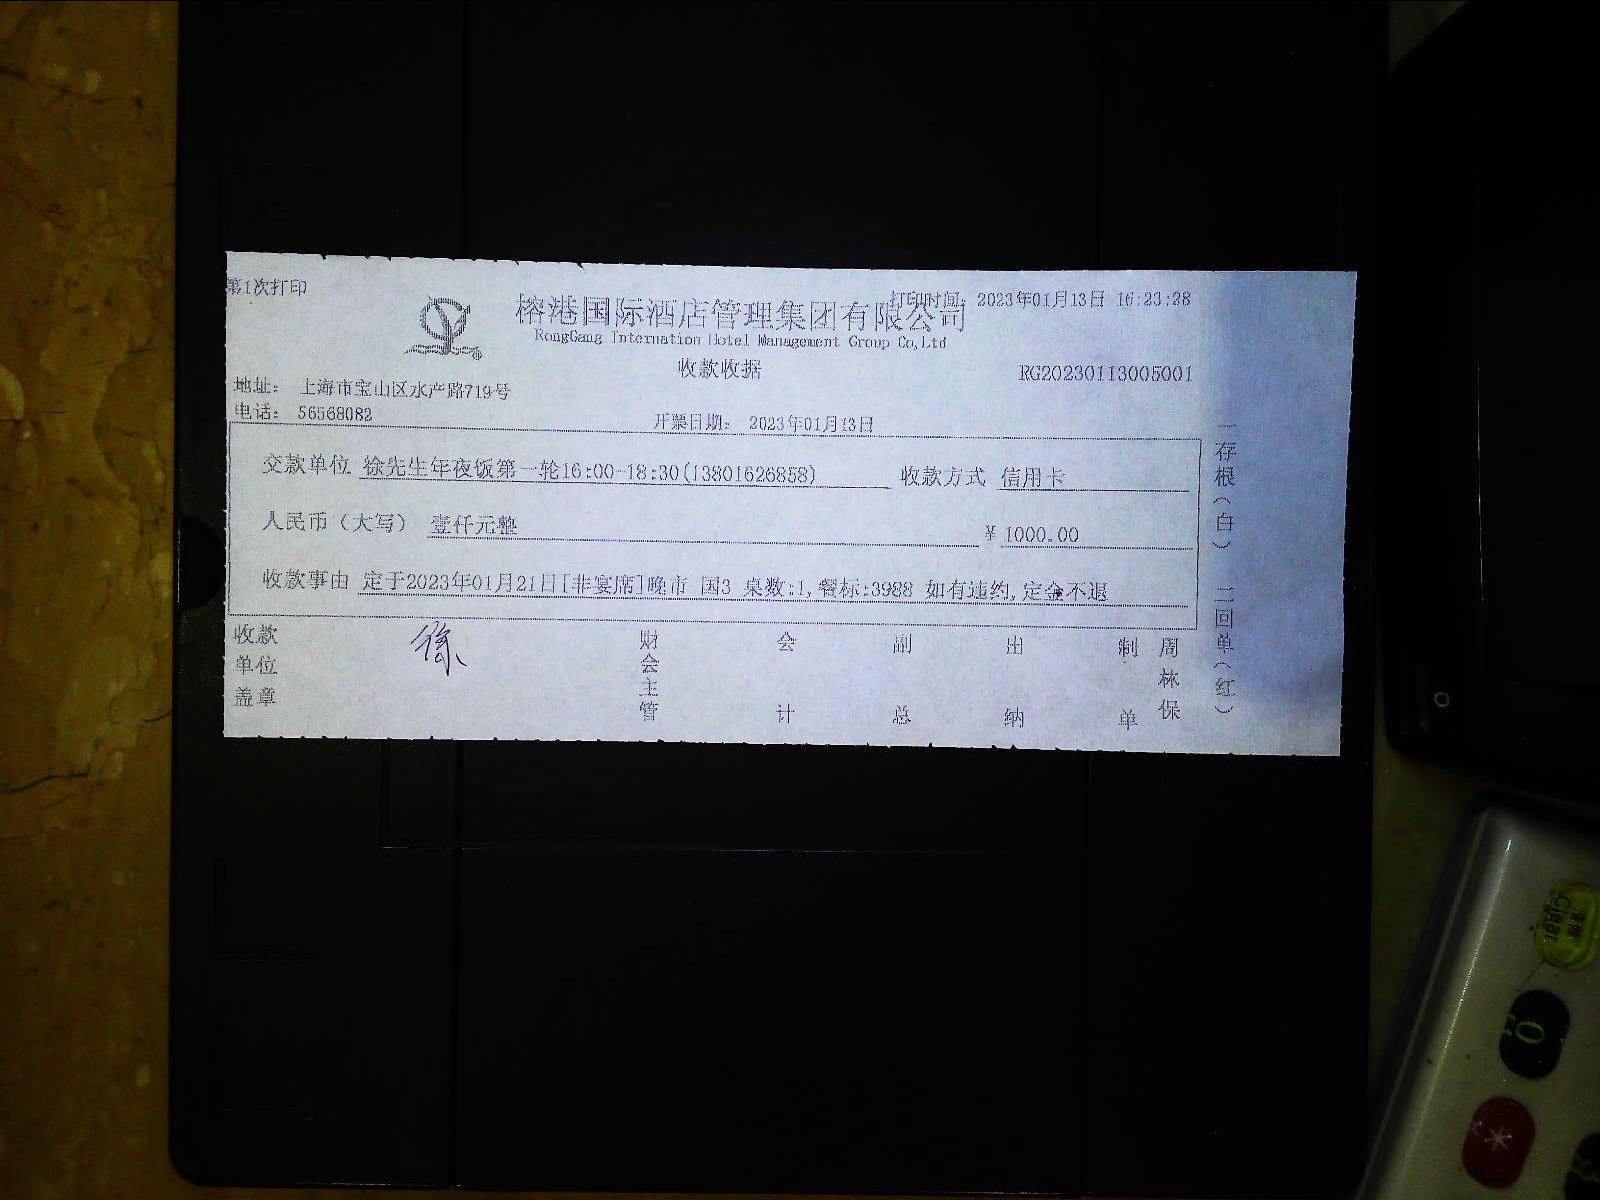 第1次打印
打印时间: 2023年01月13日 16:23:28
榕港国际酒店管理集团有限公司
RongGang Internation Hotel Management Group Co,Ltd
收款收据
RG20230113005001
地址: 上海市宝山区水产路719号
电话: 56568082
开票日期: 2023年01月13日
交款单位 徐先生年夜饭第一轮16:00-18:30(13801626858) 收款方式 信用卡
人民币(大写) 壹仟元整 ¥ 1000.00
收款事由 定于2023年01月21日[非宴席]晚市 国3 桌数:1,餐标:3988 如有违约,定金不退
收款单位盖章 徐 财会主管 会计 副总 出纳 制单 周林保
一存根(白) 二回单(红)
清除
Clear
0
*